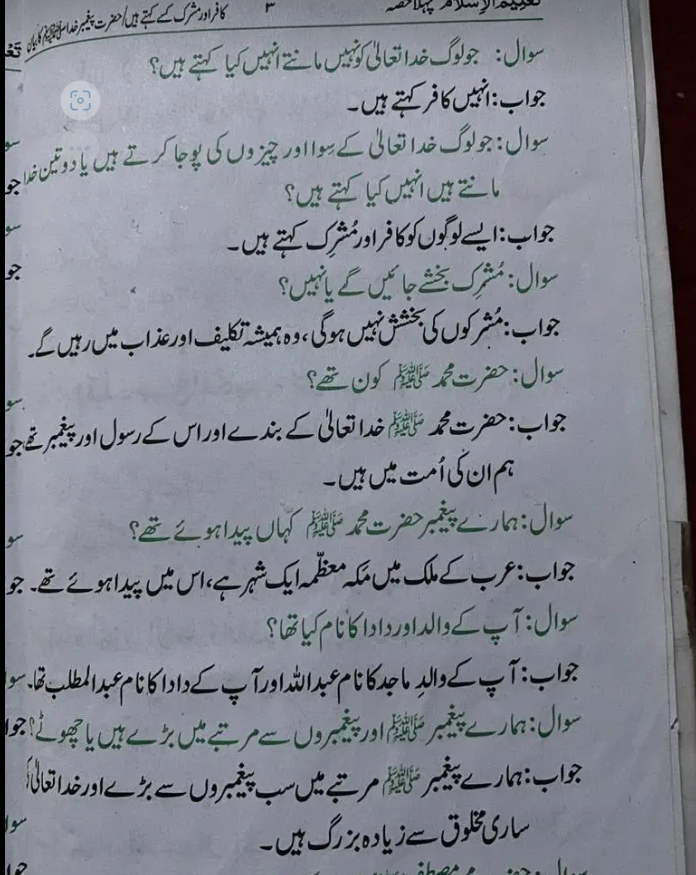 تعلیم الاسلام پہلا حصہ ۳ کافر اور مشرک کسے کہتے ہیں/حضرت پیغمبر خدا ﷺ کا بیان
سوال: جو لوگ خدا تعالیٰ کو نہیں مانتے انہیں کیا کہتے ہیں؟
جواب: انہیں کافر کہتے ہیں۔
سوال: جو لوگ خدا تعالیٰ کے سِوا اور چیزوں کی پوجا کرتے ہیں یا دو تین خدا
مانتے ہیں انہیں کیا کہتے ہیں؟
جواب: ایسے لوگوں کو کافر اور مُشرِک کہتے ہیں۔
سوال: مُشرِک بخشے جائیں گے یا نہیں؟
جواب: مُشرکوں کی بخشش نہیں ہوگی، وہ ہمیشہ تکلیف اور عذاب میں رہیں گے۔
سوال: حضرت محمد ﷺ کون تھے؟
جواب: حضرت محمد ﷺ خدا تعالیٰ کے بندے اور اس کے رسول اور پیغمبر تھے
ہم ان کی اُمت میں ہیں۔
سوال: ہمارے پیغمبر حضرت محمد ﷺ کہاں پیدا ہوئے تھے؟
جواب: عرب کے ملک میں مکہ معظّمہ ایک شہر ہے، اس میں پیدا ہوئے تھے۔
سوال: آپ کے والد اور دادا کا نام کیا تھا؟
جواب: آپ کے والدِ ماجد کا نام عبداللہ اور آپ کے دادا کا نام عبدالمطلب تھا۔
سوال: ہمارے پیغمبر ﷺ اور پیغمبروں سے مرتبے میں بڑے ہیں یا چھوٹے؟
جواب: ہمارے پیغمبر ﷺ مرتبے میں سب پیغمبروں سے بڑے اور خدا تعالیٰ
ساری مخلوق سے زیادہ بزرگ ہیں۔